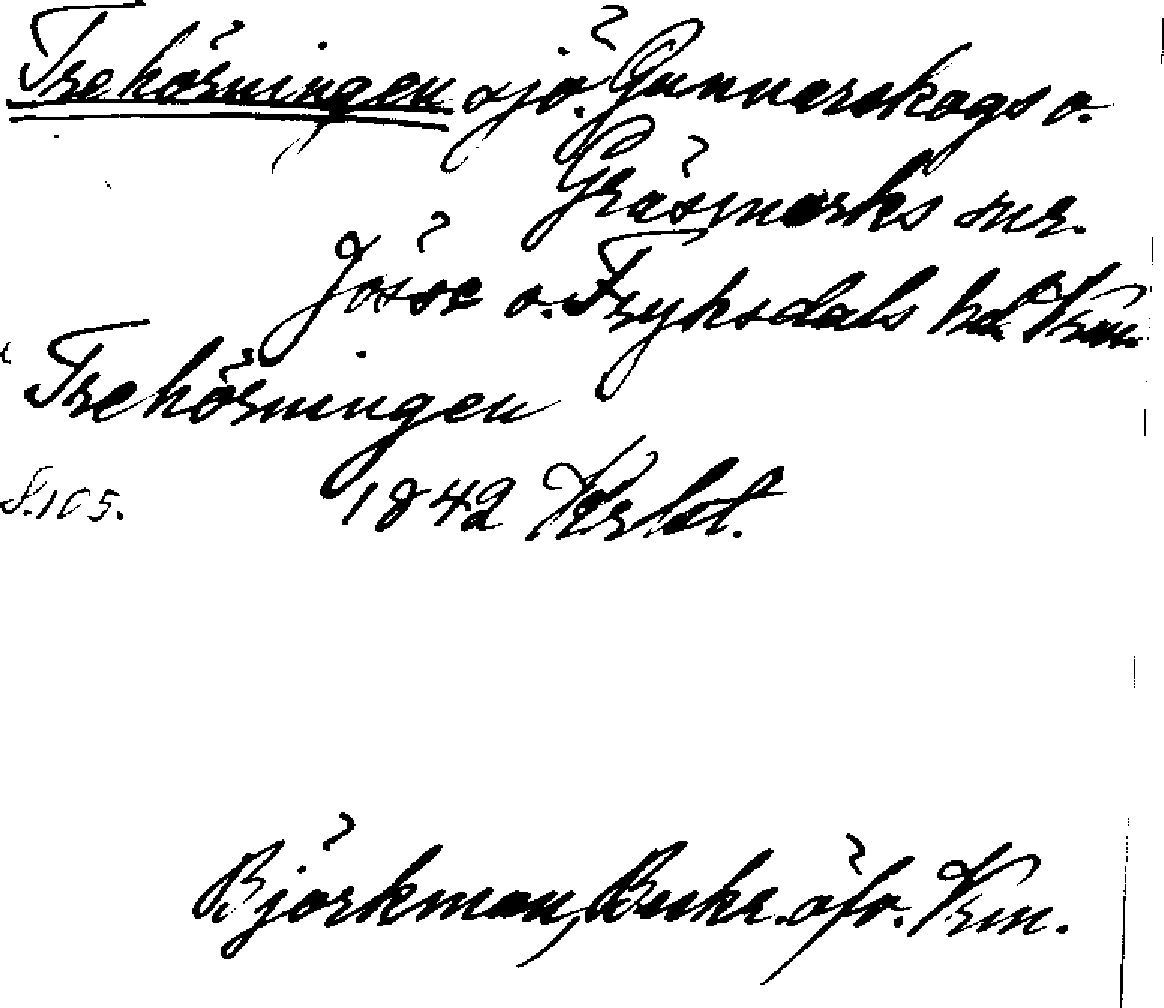 Trehörningen sjö. Gunnarskogs o.
Gräsmarks snr.
Jösse o. Fryksdals hd. Vrm.
Trehörningen
S. 105. 1842 Krbt.
Björkman, Beskr. öfv. Vrm.